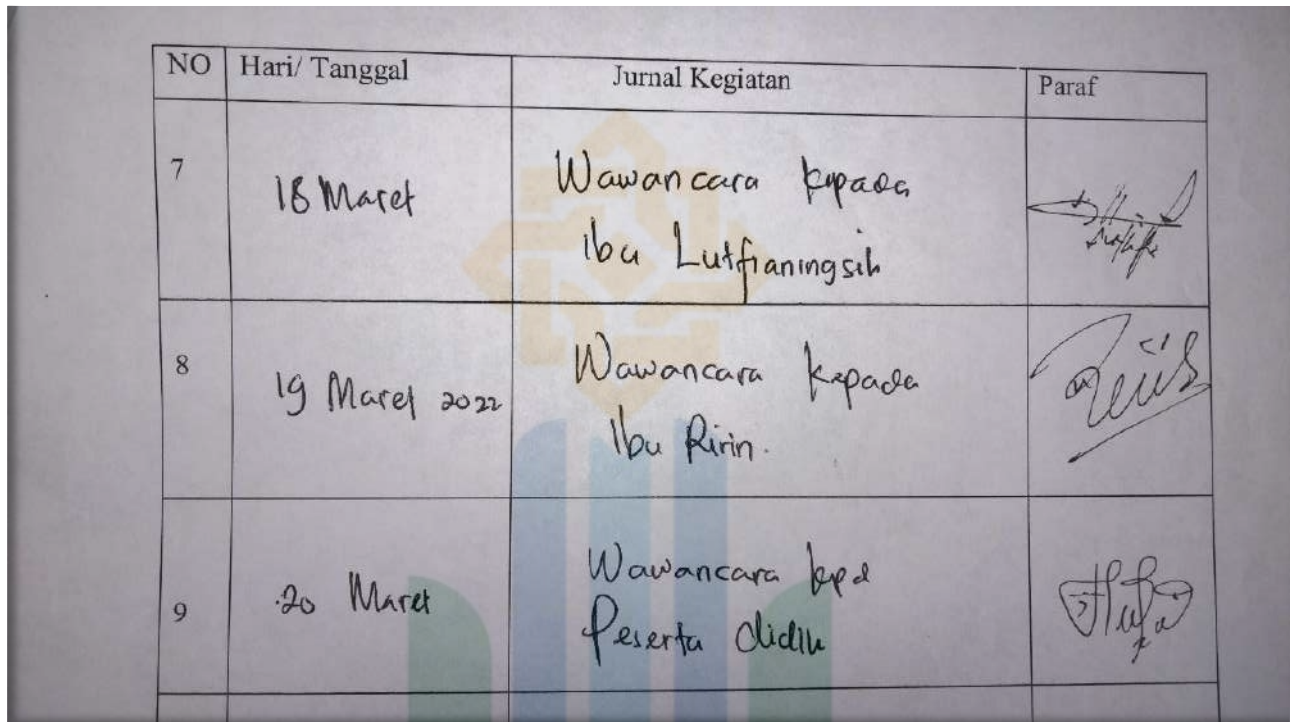 NO Hari/ Tanggal Jurnal Kegiatan Paraf
7 18 Maret Wawancara kepada
Ibu Lutfianingsih
8 19 Maret 2022 Wawancara kepada
Ibu Ririn.
9 20 Maret Wawancara kpd
Peserta didik